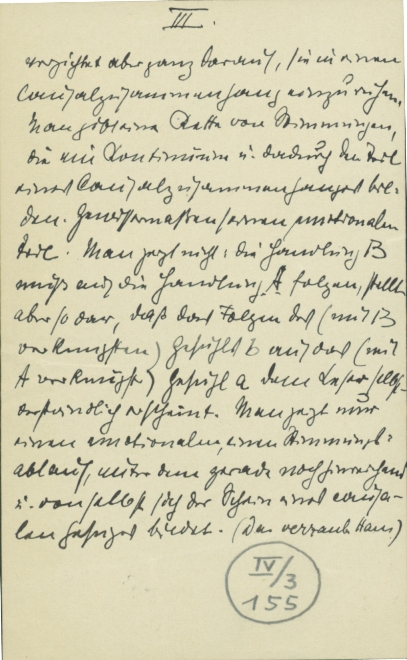 III.
verzichtet aber ganz darauf, sie in einen
Causalzusammenhang einzureihen.
Man gibt eine Kette von Stimmungen,
die ein Kontinuum u. dadurch den Teil
eines Causalzusammenhanges bil-
den. Gewissermaßen seinen emotionalen
Teil. Man zeigt nicht: die Handlung B
muß auf die Handlung A folgen, stellt
aber so dar, daß das Folgen des (mit B
verknüpften) Gefühles b auf das (mit
A verknüpfte) Gefühl a dem Leser selbst-
verständlich erscheint. Man zeigt nur
einen emotionalen, einen Stimmungs-
ablauf, unter dem gerade noch hinreichend
u. von selbst sich der Schein eines causa-
len Gefüges bildet. (Das verzaub. Haus)
IV/3
155